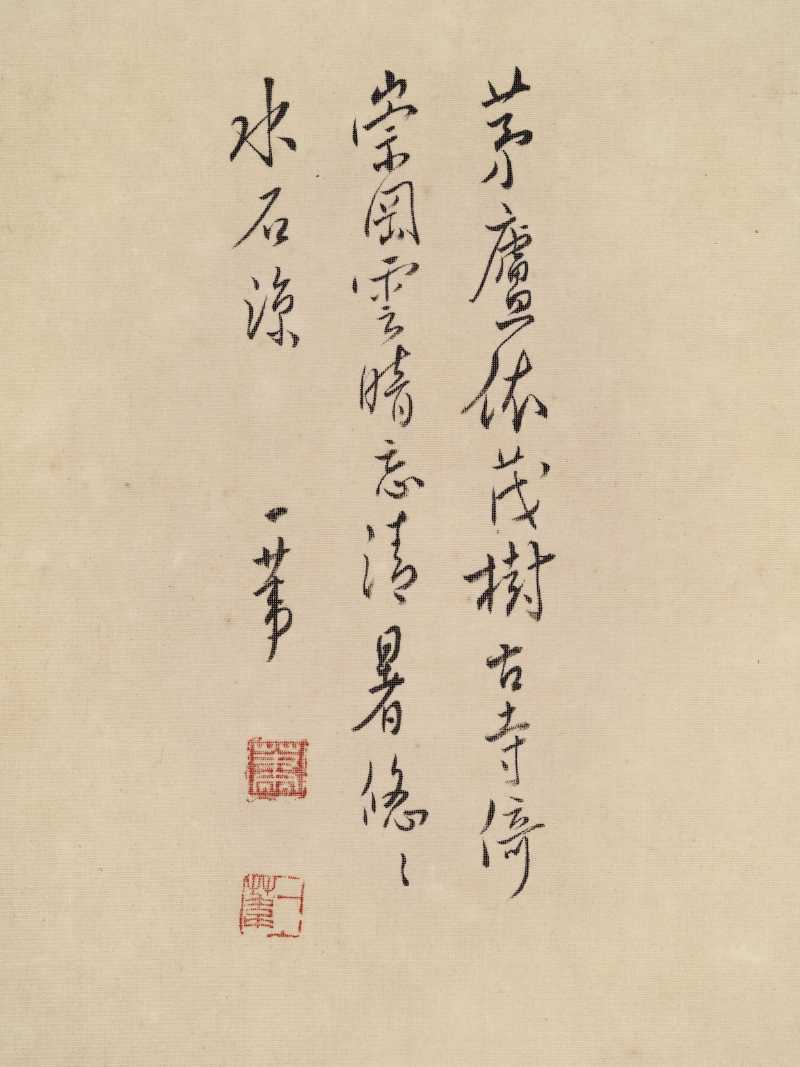 茅廬依茂樹古寺倚
崇岡雲忘清暑悠〻
水石涼
一葦